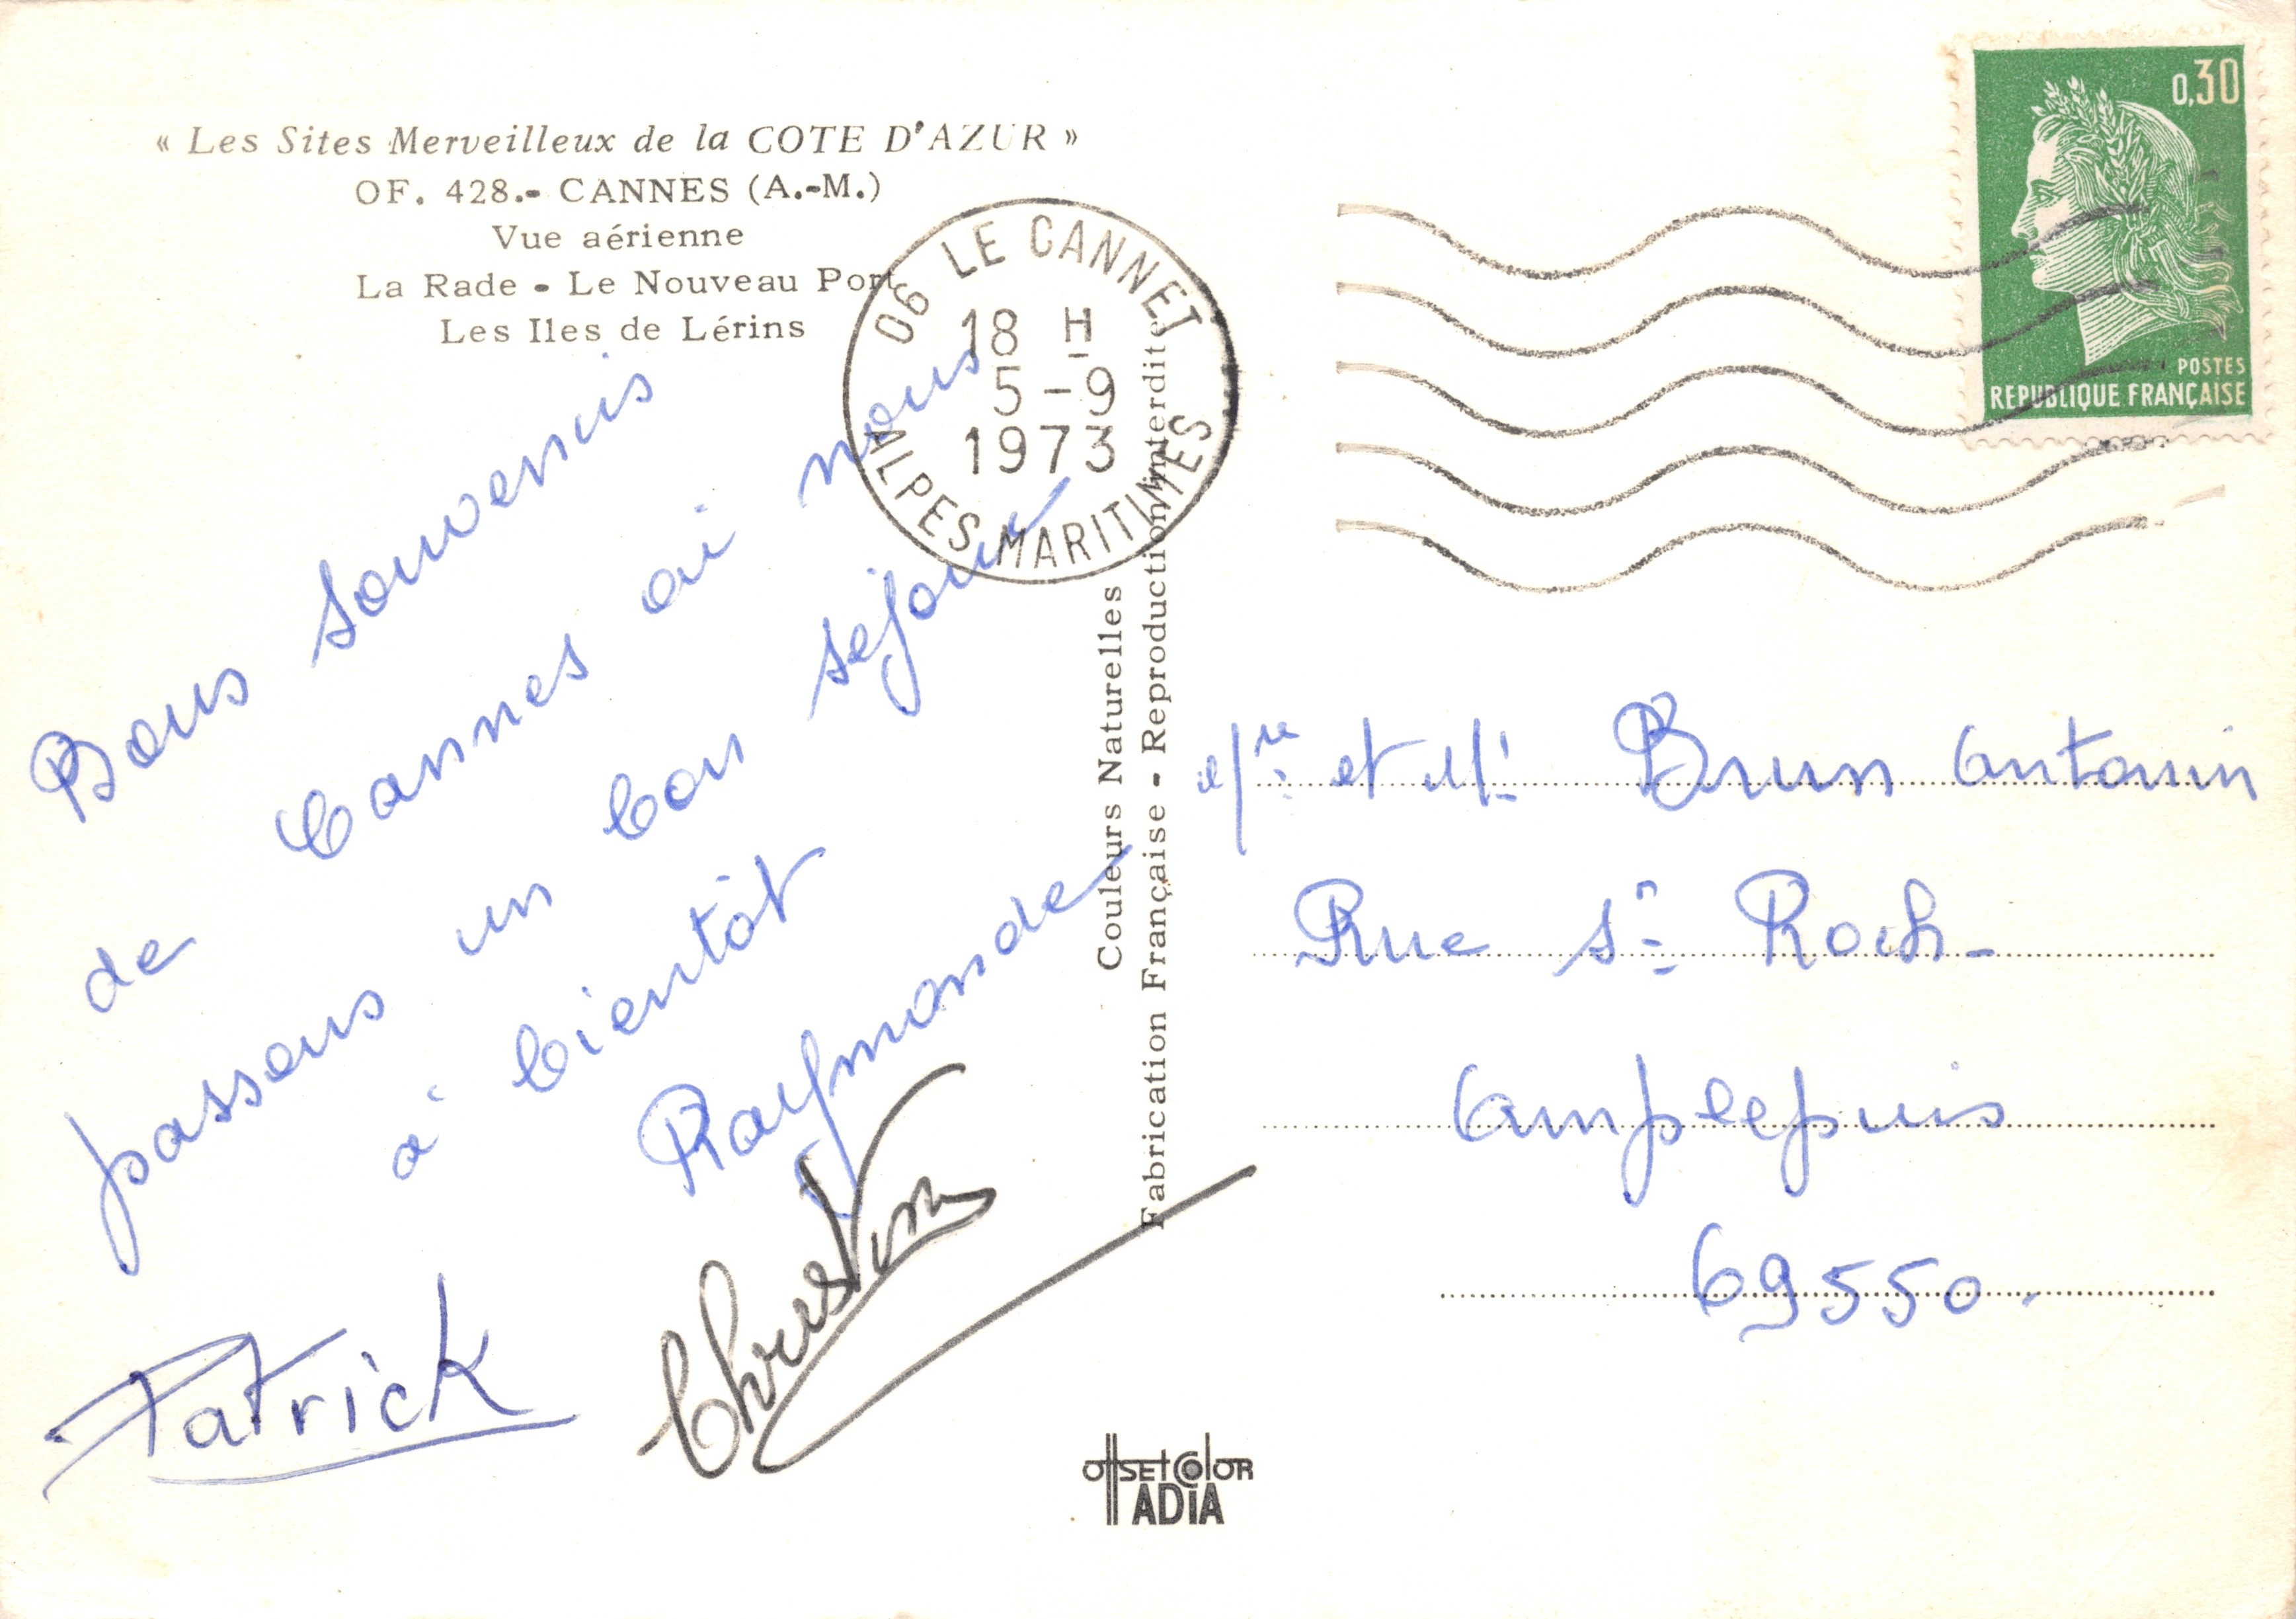 « Les Sites Merveilleux de la COTE D'AZUR »
OF. 428.- CANNES (A.-M.)
Vue aérienne
La Rade - Le Nouveau Port
Les Iles de Lérins
Bons souvenirs
de Cannes où nous
passons un bon séjour
à bientôt
Raymonde
Christian
Patrick
06 LE CANNET
18 H
5-9
1973
ALPES MARITIMES
Couleurs Naturelles
Fabrication Française - Reproduction interdite
0,30
POSTES
REPUBLIQUE FRANÇAISE
et Mr Brun Antonin
Rue St Roch-
Amplepuis
69550.
OFFSET COLOR
ADIA